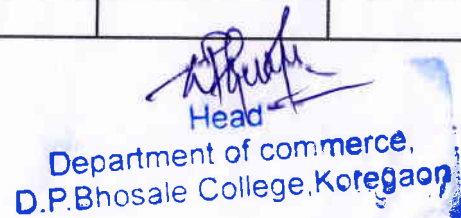 Head
Department of commerce,
D.P.Bhosale College,Koregaon